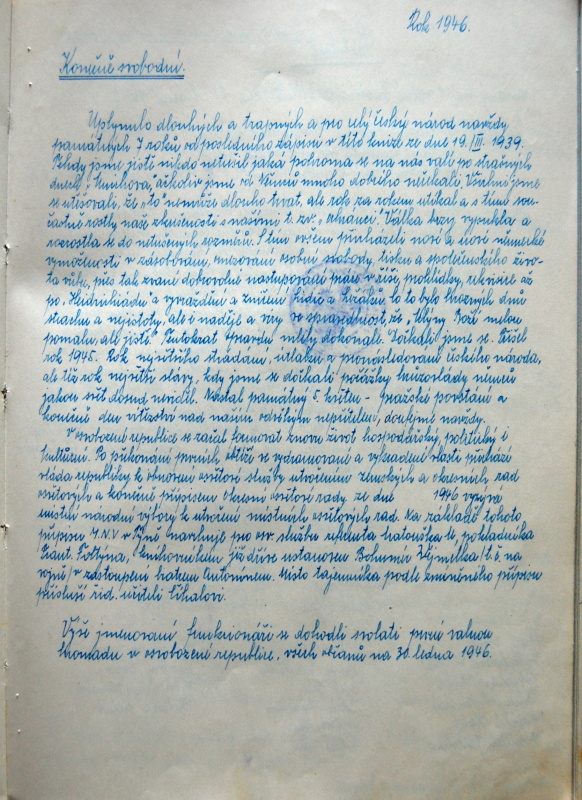 Rok 1946.
Konečně svobodni.
Uplynulo dlouhých a trapných a pro celý český národ navždy
památných 7 roků od posledního zápisu v této knize ze dne 19. III. 1939.
Tehdy jsme jistě nikdo netušil jaká pohroma se na nás valí po strašných
dnech, ačkoliv jsme od Němců mnoho dobrého nečekali. Všichni jsme
se utěšovali, že „to“ nemůže dlouho trvat, ale rok za rokem utíkal a s tím sou-
časně rostly naše zkušenosti s našimi t. zv. „ochranci“. Válka brzy vypukla a
rozrostla se do netušených rozměrů. S tím ovšem přicházeli nové a nové německé
vymoženosti v zásobování, omezování osobní svobody, tisku a společenského živo-
ta vůbec, přes tak zvané dobrovolné nastupování práce v říši, prohlídky, rekvisice až
po Heidrichiádu a vyvraždění a zničení Lidic a Ležáků, to to bylo hrozných dnů
strachu a nejistoty, ale i naděje a víry ve spravedlnost, že „Mlýny Boží melou
pomalu, ale jistě.“ Tentokrát opravdu mlely dokonale. Dočkali jsme se. Přišel
rok 1945. Rok největšího strádání, útlaku a pronásledování českého národa,
ale též rok největší slávy, kdy jsme se dočkali porážky hrůzovlády němců
jakou svět dosud neviděl. Nastal památný 5. květen - pražské povstání a
konečně den vítězství nad naším odvěkým nepřítelem, doufejme navždy.
V osvobozené republice se začal formovat znovu život hospodářský, politický i
kulturní. Po překonání prvních obtíží ve vydrancované a vykradené vlasti přichází
vláda republiky k obnovení osvětové služby utvořením zemských a okresních rad
osvětových a konečně přípisem Okresní osvětové rady ze dne 1946 vyzývá
místní národní výbory k utvoření místních osvětových rad. Na základě tohoto
přípisu M.N.V v Týně navrhuje pro osv. službu, pokladníka
Frant. Foltýna, knihovníkem již dříve ustanoven Bohumír Vejmelka /t. č. na
vojně/ v zastoupení bratrem Antonínem. Místo tajemníka podle zmíněného přípisu
přísluší říd. učiteli Číhalovi.
Výše jmenovaní funkcionáři se dohodli svolati první valnou
hromadu v osvobozené republice, všech občanů na 30. ledna 1946.